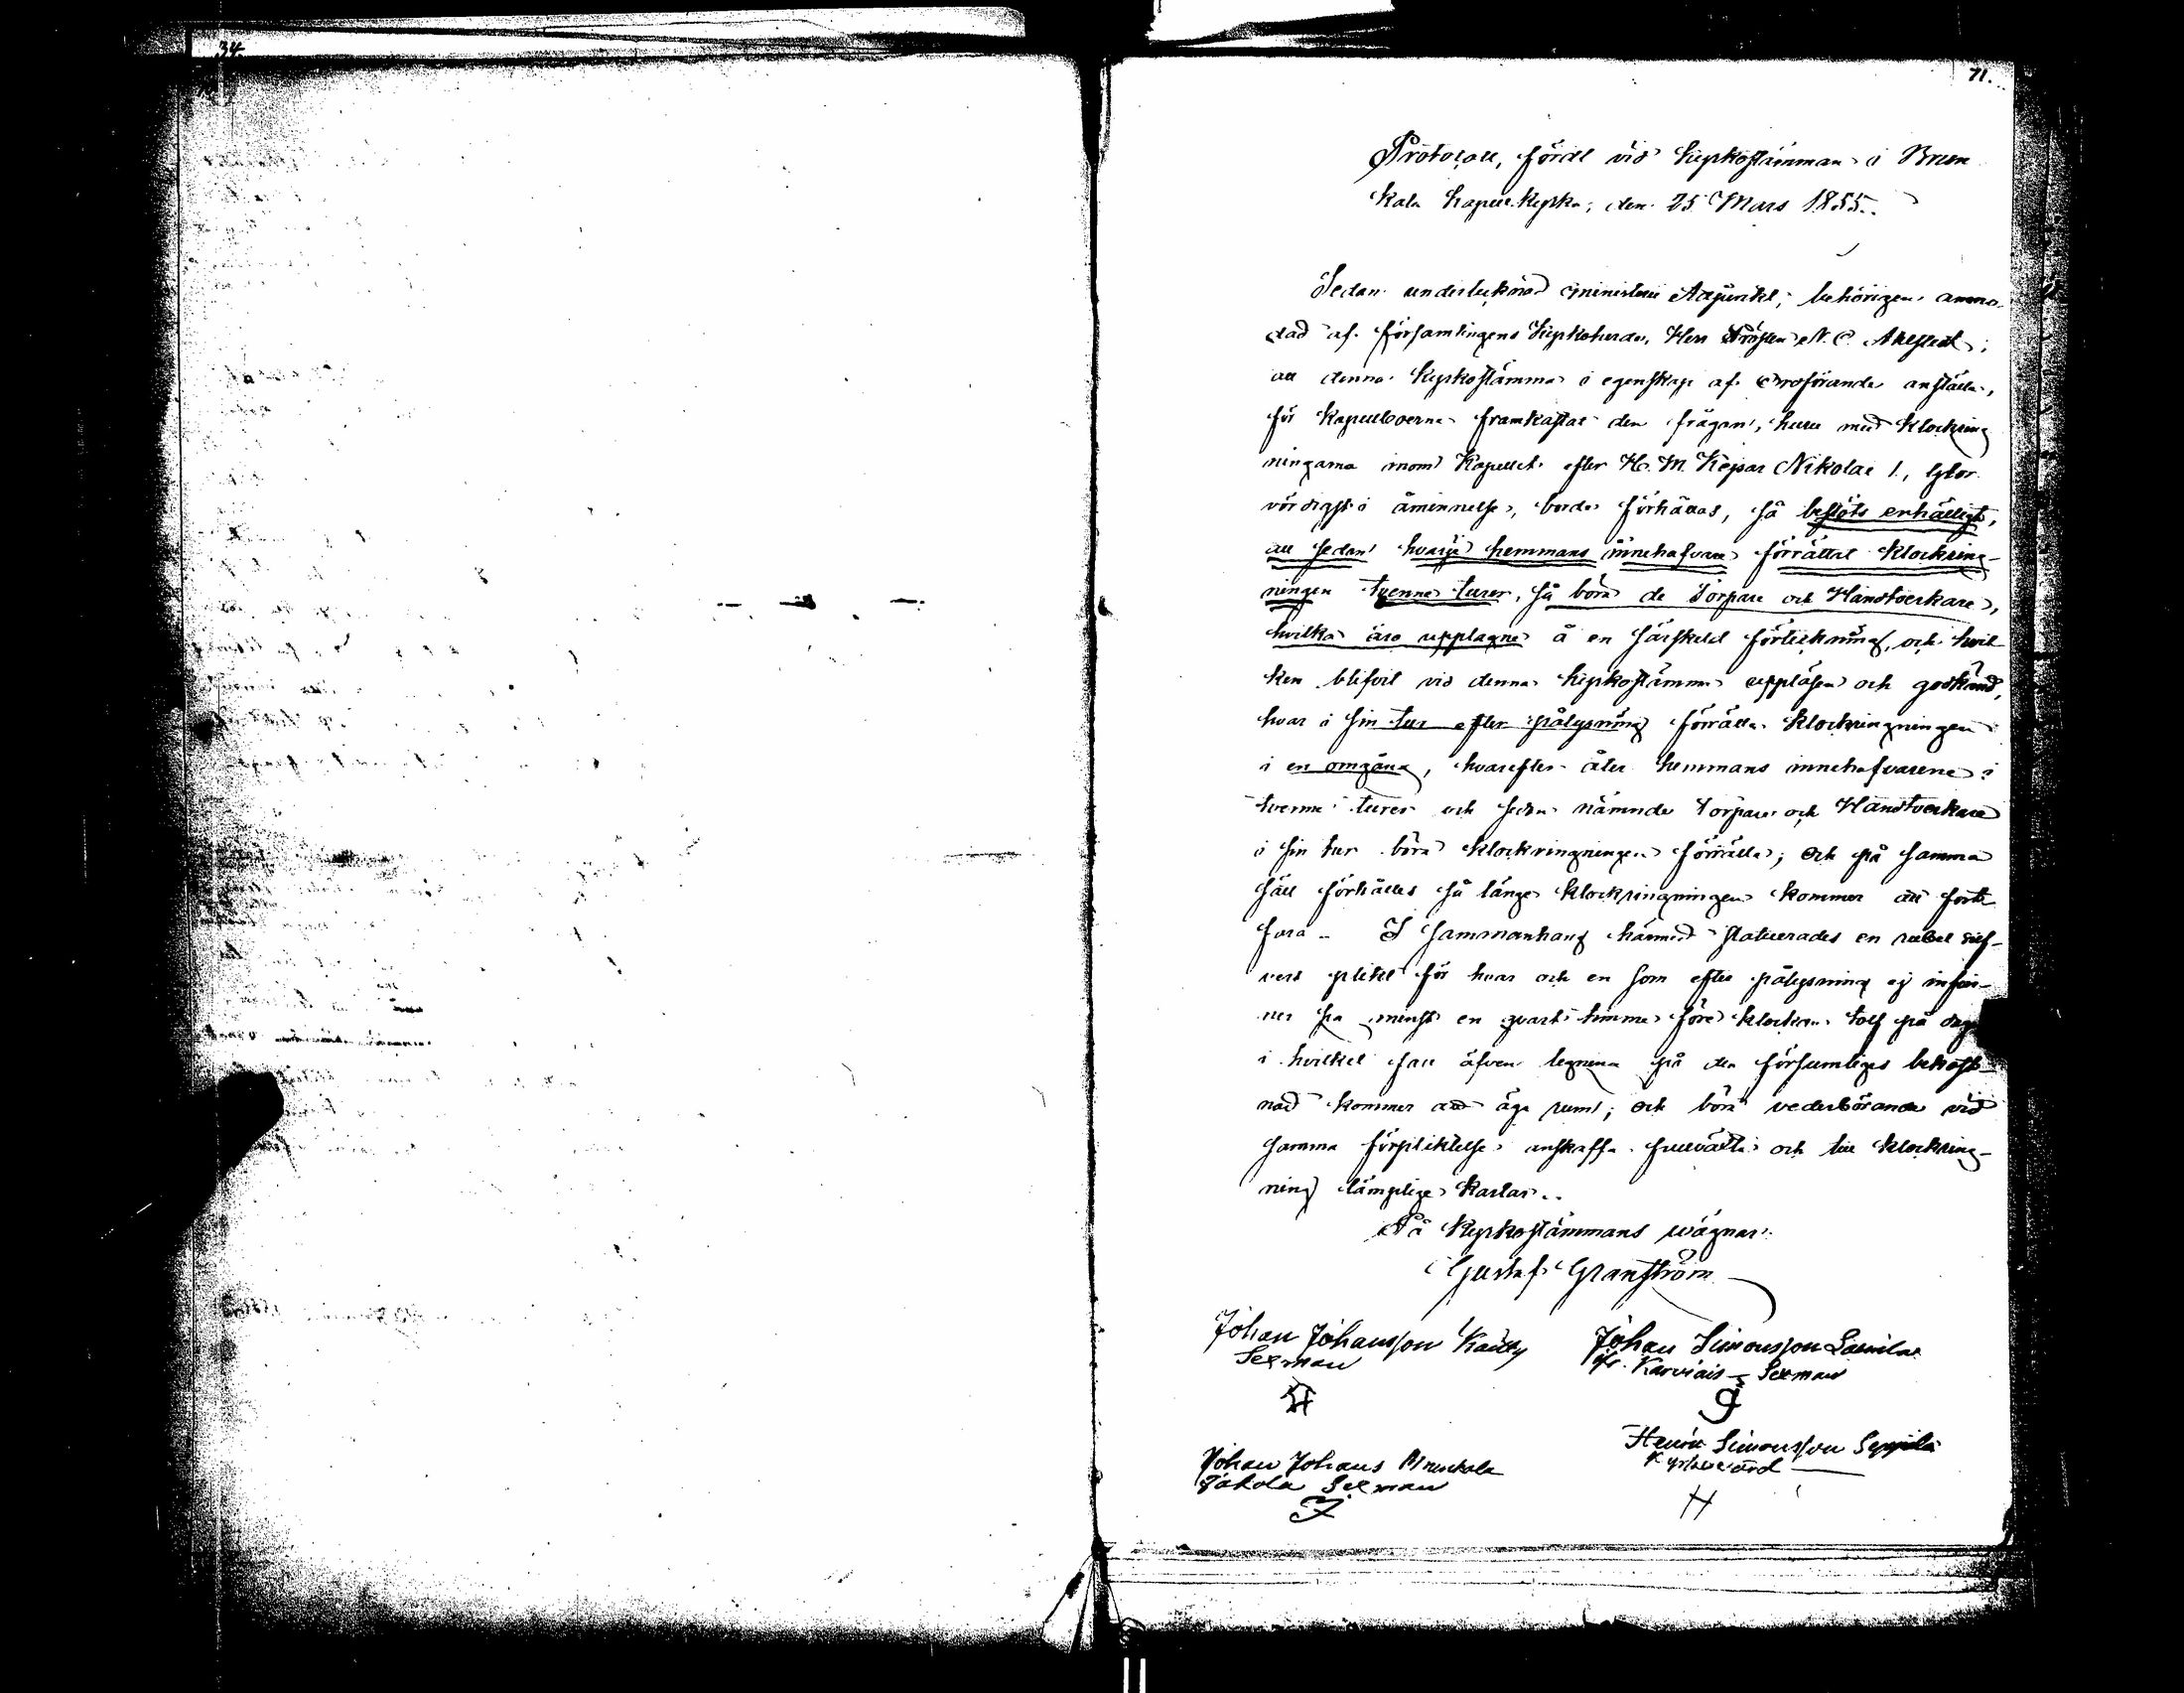 34.
71.
Protocoll, fördt vid Kyrkostämman i Brun
kala Kapell kyrka, den 25 Mars 1855.
Sedan undertecknad Ministerii Adjunkt, behörigen anmo
dad af församlingens Kyrkoherde, Herr Prosten N. C.
att denna Kyrkostämma i egenskap af Ordförande anställa,
för Kapellboerne framkastat den frågan, huru med klockring
ningarna inom Kapellet efter H. M. Kejsar Nikolai I.,
vördigst i åminnelse, borde förhållas, så beslöts enhälligt,
att sedan hvarje hemmans innehafvare förrättat klockring-
ningen tvenne turer, så böra de Torpare och Handtverkare,
hvilka äro upptagne å en särskild förteckning, och hvil
ken blifvit vid denna kyrkostämma uppläsen och godkänd,
hvar i sin tur efter pålysning förrätta klockringningen
i en omgång, hvarefter åter hemmans innehafvarene i
tvenne turer och sedan nämnde Torpare och Handtverkare
i sin tur böra klockringningen förrätta; och på samma
sätt förhålles så länge klockringningen kommer att fort
fara - I sammanhang härmed statuerades en rubel silf-
vers plikt för hvar och en som efter pålysning ej infin-
ner sig minst en qvart timme före klockan tolf på dagen
i hvilket fall äfven legning på den försumliges bekost
nad kommer att äga rum; och böra vederbörande vid
samma förpliktelse anskaffa fullväxta och till klockring-
ning lämplige karlar.
På Kyrkostämmans wägnar:
Gustaf Granström
Johan Johansson
Sexman
Johan Simonsson
Karviais - Sexman
Johan Johans Brunkala
Jakola Sexman
J
Henric Simonsson Seppälä
Kyrkovärd
H